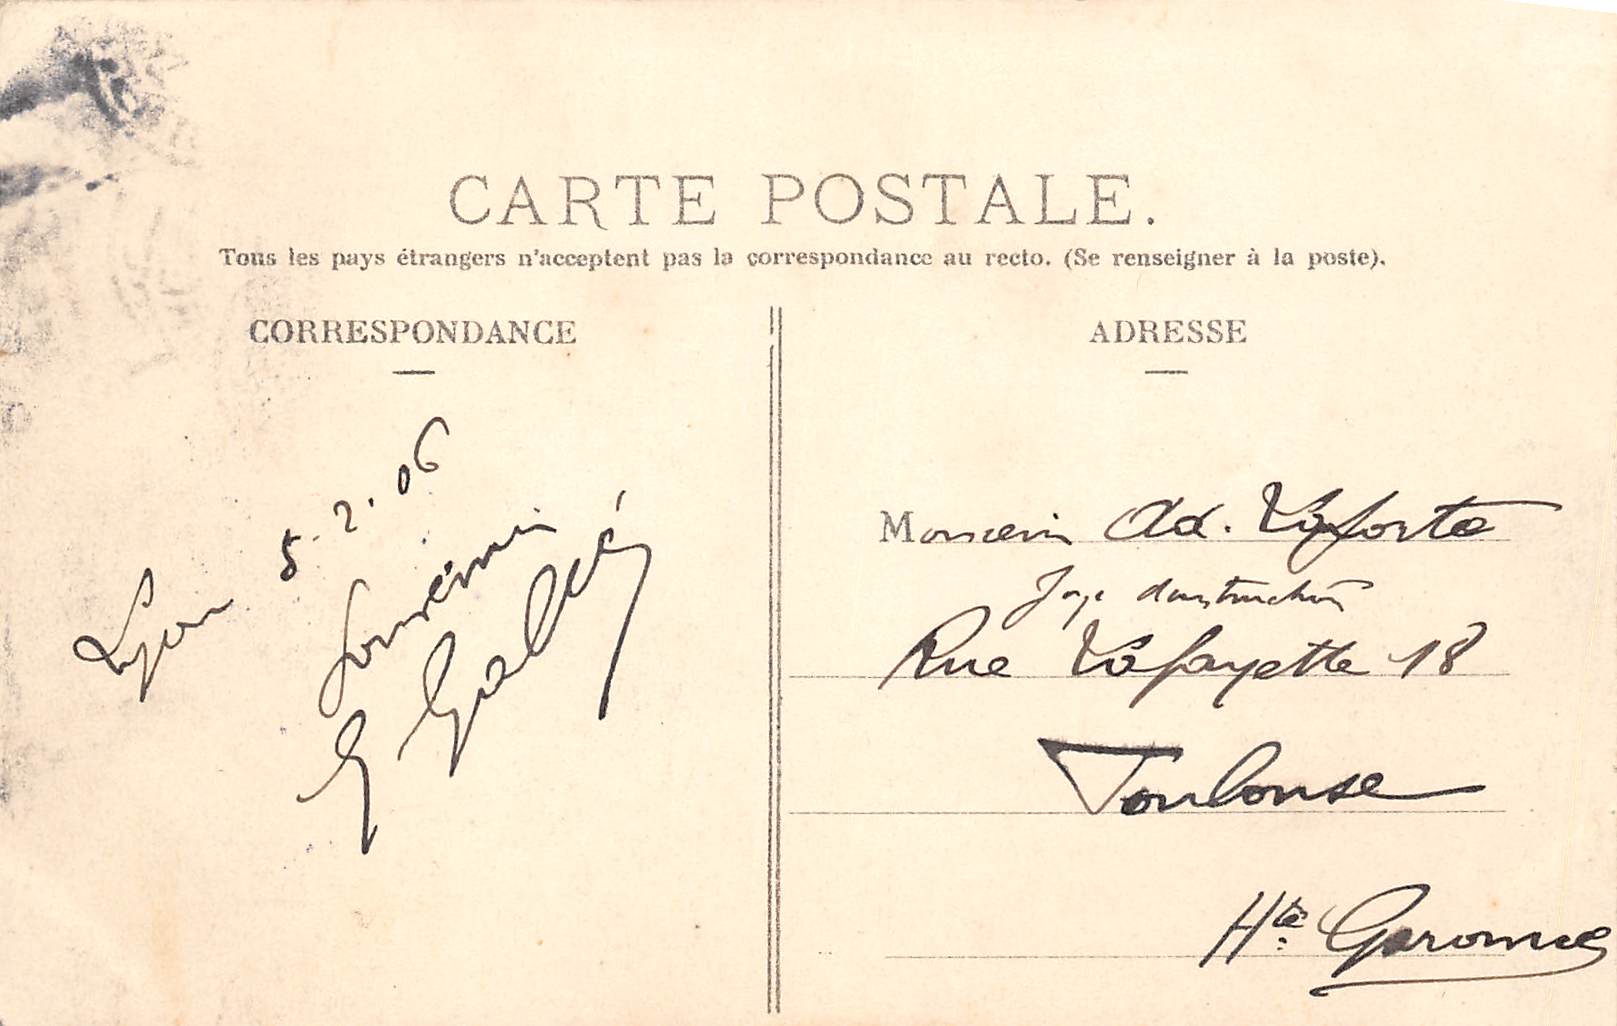 CARTE POSTALE.
Tous les pays étrangers n'acceptent pas la correspondance au recto. (Se renseigner à la poste).
CORRESPONDANCE
Lyon 5.2.06
Souvenir
ADRESSE
Monsieur Ad. Laforte
Juge d'instruction
Rue Lafayette 18
Toulouse
Hte Garonne